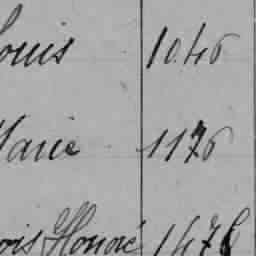 ouis 1046
Marie 1176
ois Honoré 1476